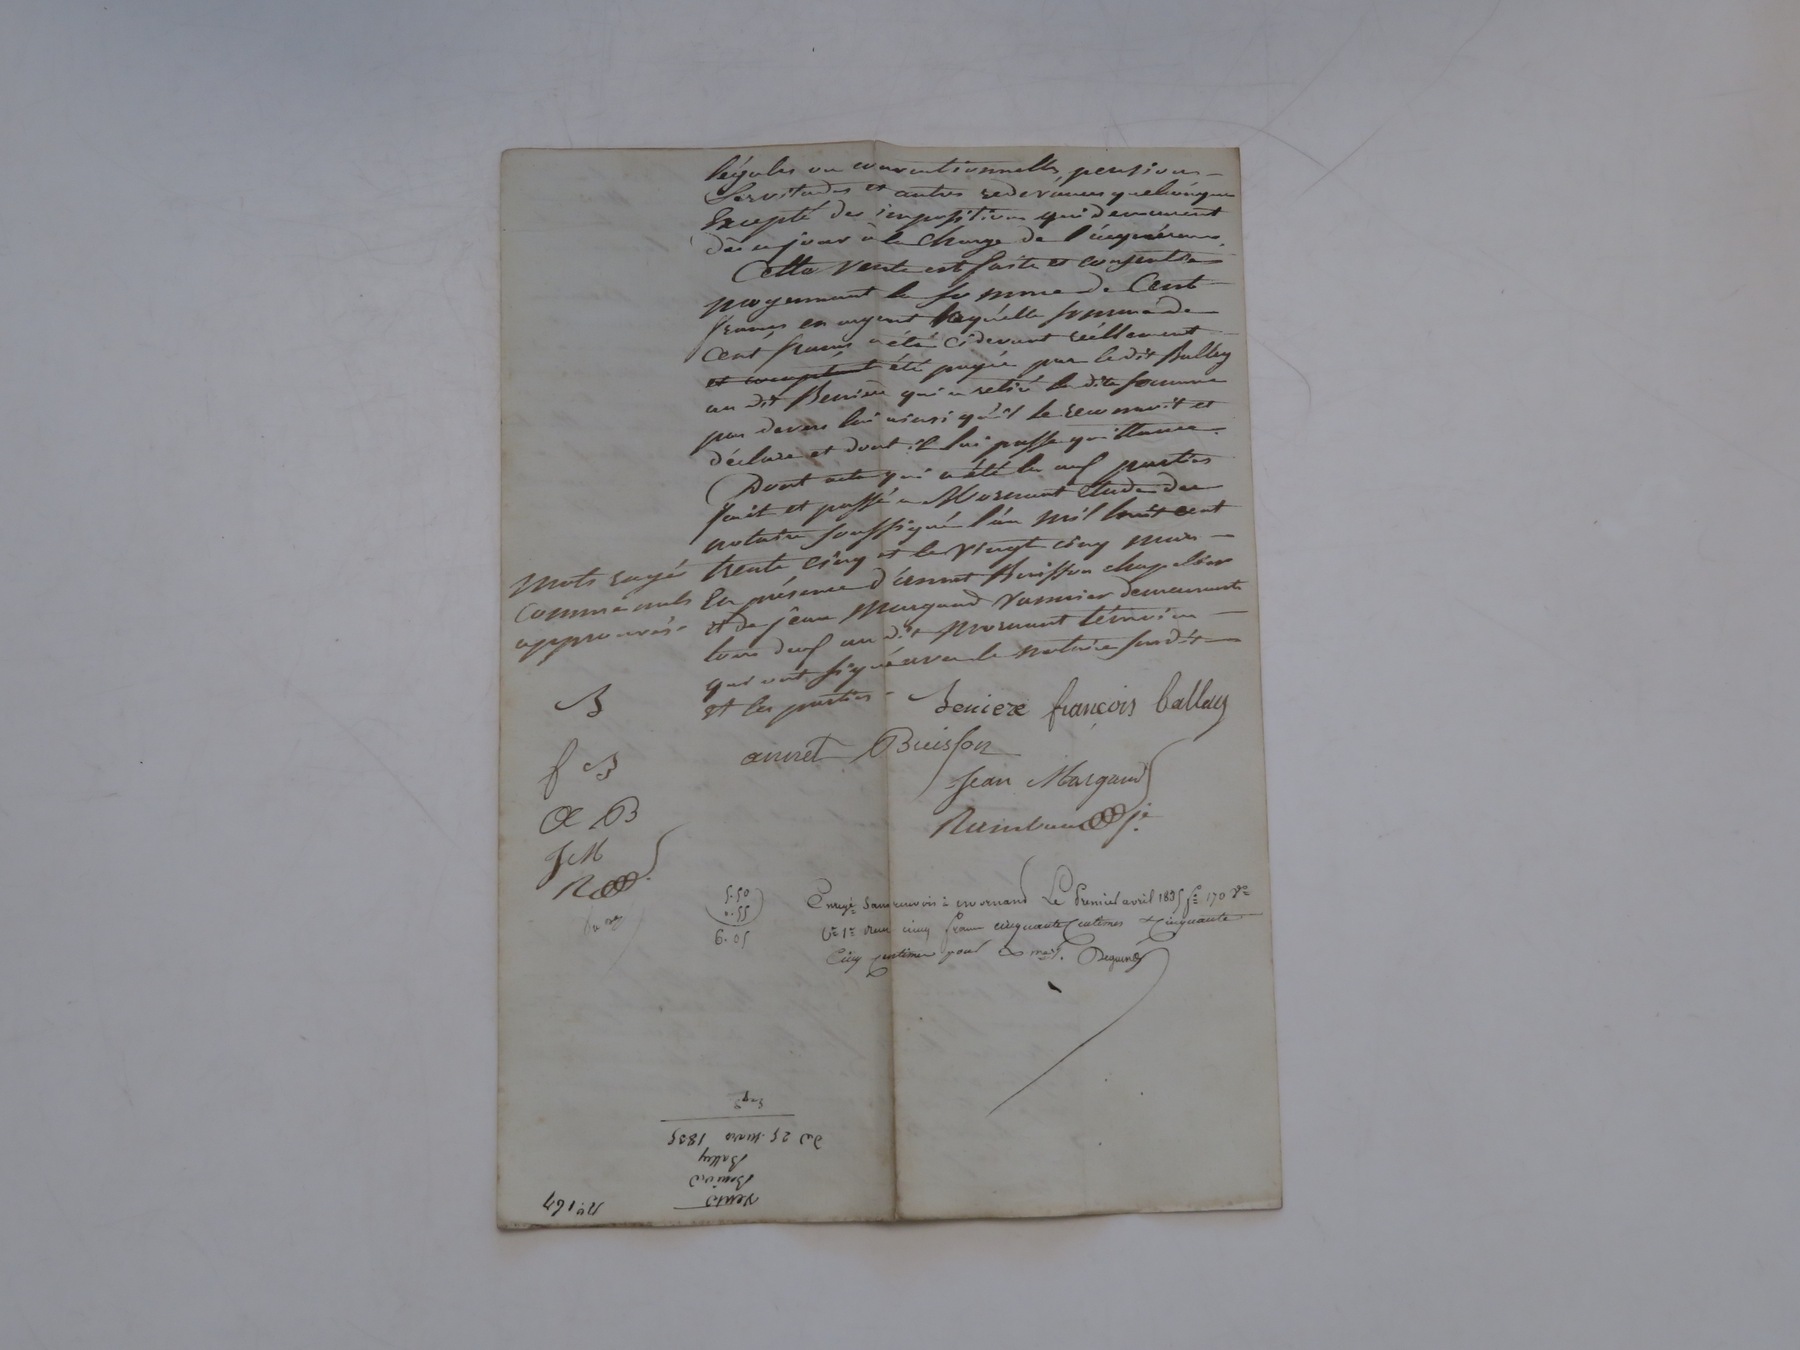 légales ou conventionnelles, pensions
Servitudes et autres redevances quelconques
Excepté des impositions qui demeurent
dès ce jour à la charge de l'acquéreur.
Cette vente est faite et consentie
moyennant la somme de Cent
francs en argent laquelle somme de
Cent francs a été ci devant réellement
et comptant été payée par le dit Balley
au dit Beniere qui a retiré la dite somme
par devers lui ainsi qu'il le reconnoit et
déclare et dont il lui passe quittance.
Dont acte qui a été lu aux parties
fait et passé à Mornant étude du
notaire soussigné l'an mil huit cent
trente cinq et le vingt cinq mars
En présence d'annet Buisson chapelier
et de jean Margand vannier demeurants
tous deux au dit Mornant témoins
qui ont signé avec le notaire susdit
et les parties
Mots rayés
comme nuls
approuvés
Beniere françois balley
annet Buisson
Jean Margand
B
f B
a B
J M
R
5.50
0.55
6.05
Enregé sans renvois à mornand Le Premier avril 1835 fo 170 Vo
Co 1er reçu cinq francs cinquante Centimes & Cinquante
Cinq centimes pour
No. 164
Vente
Beniere
Balley
du 25 mars 1835